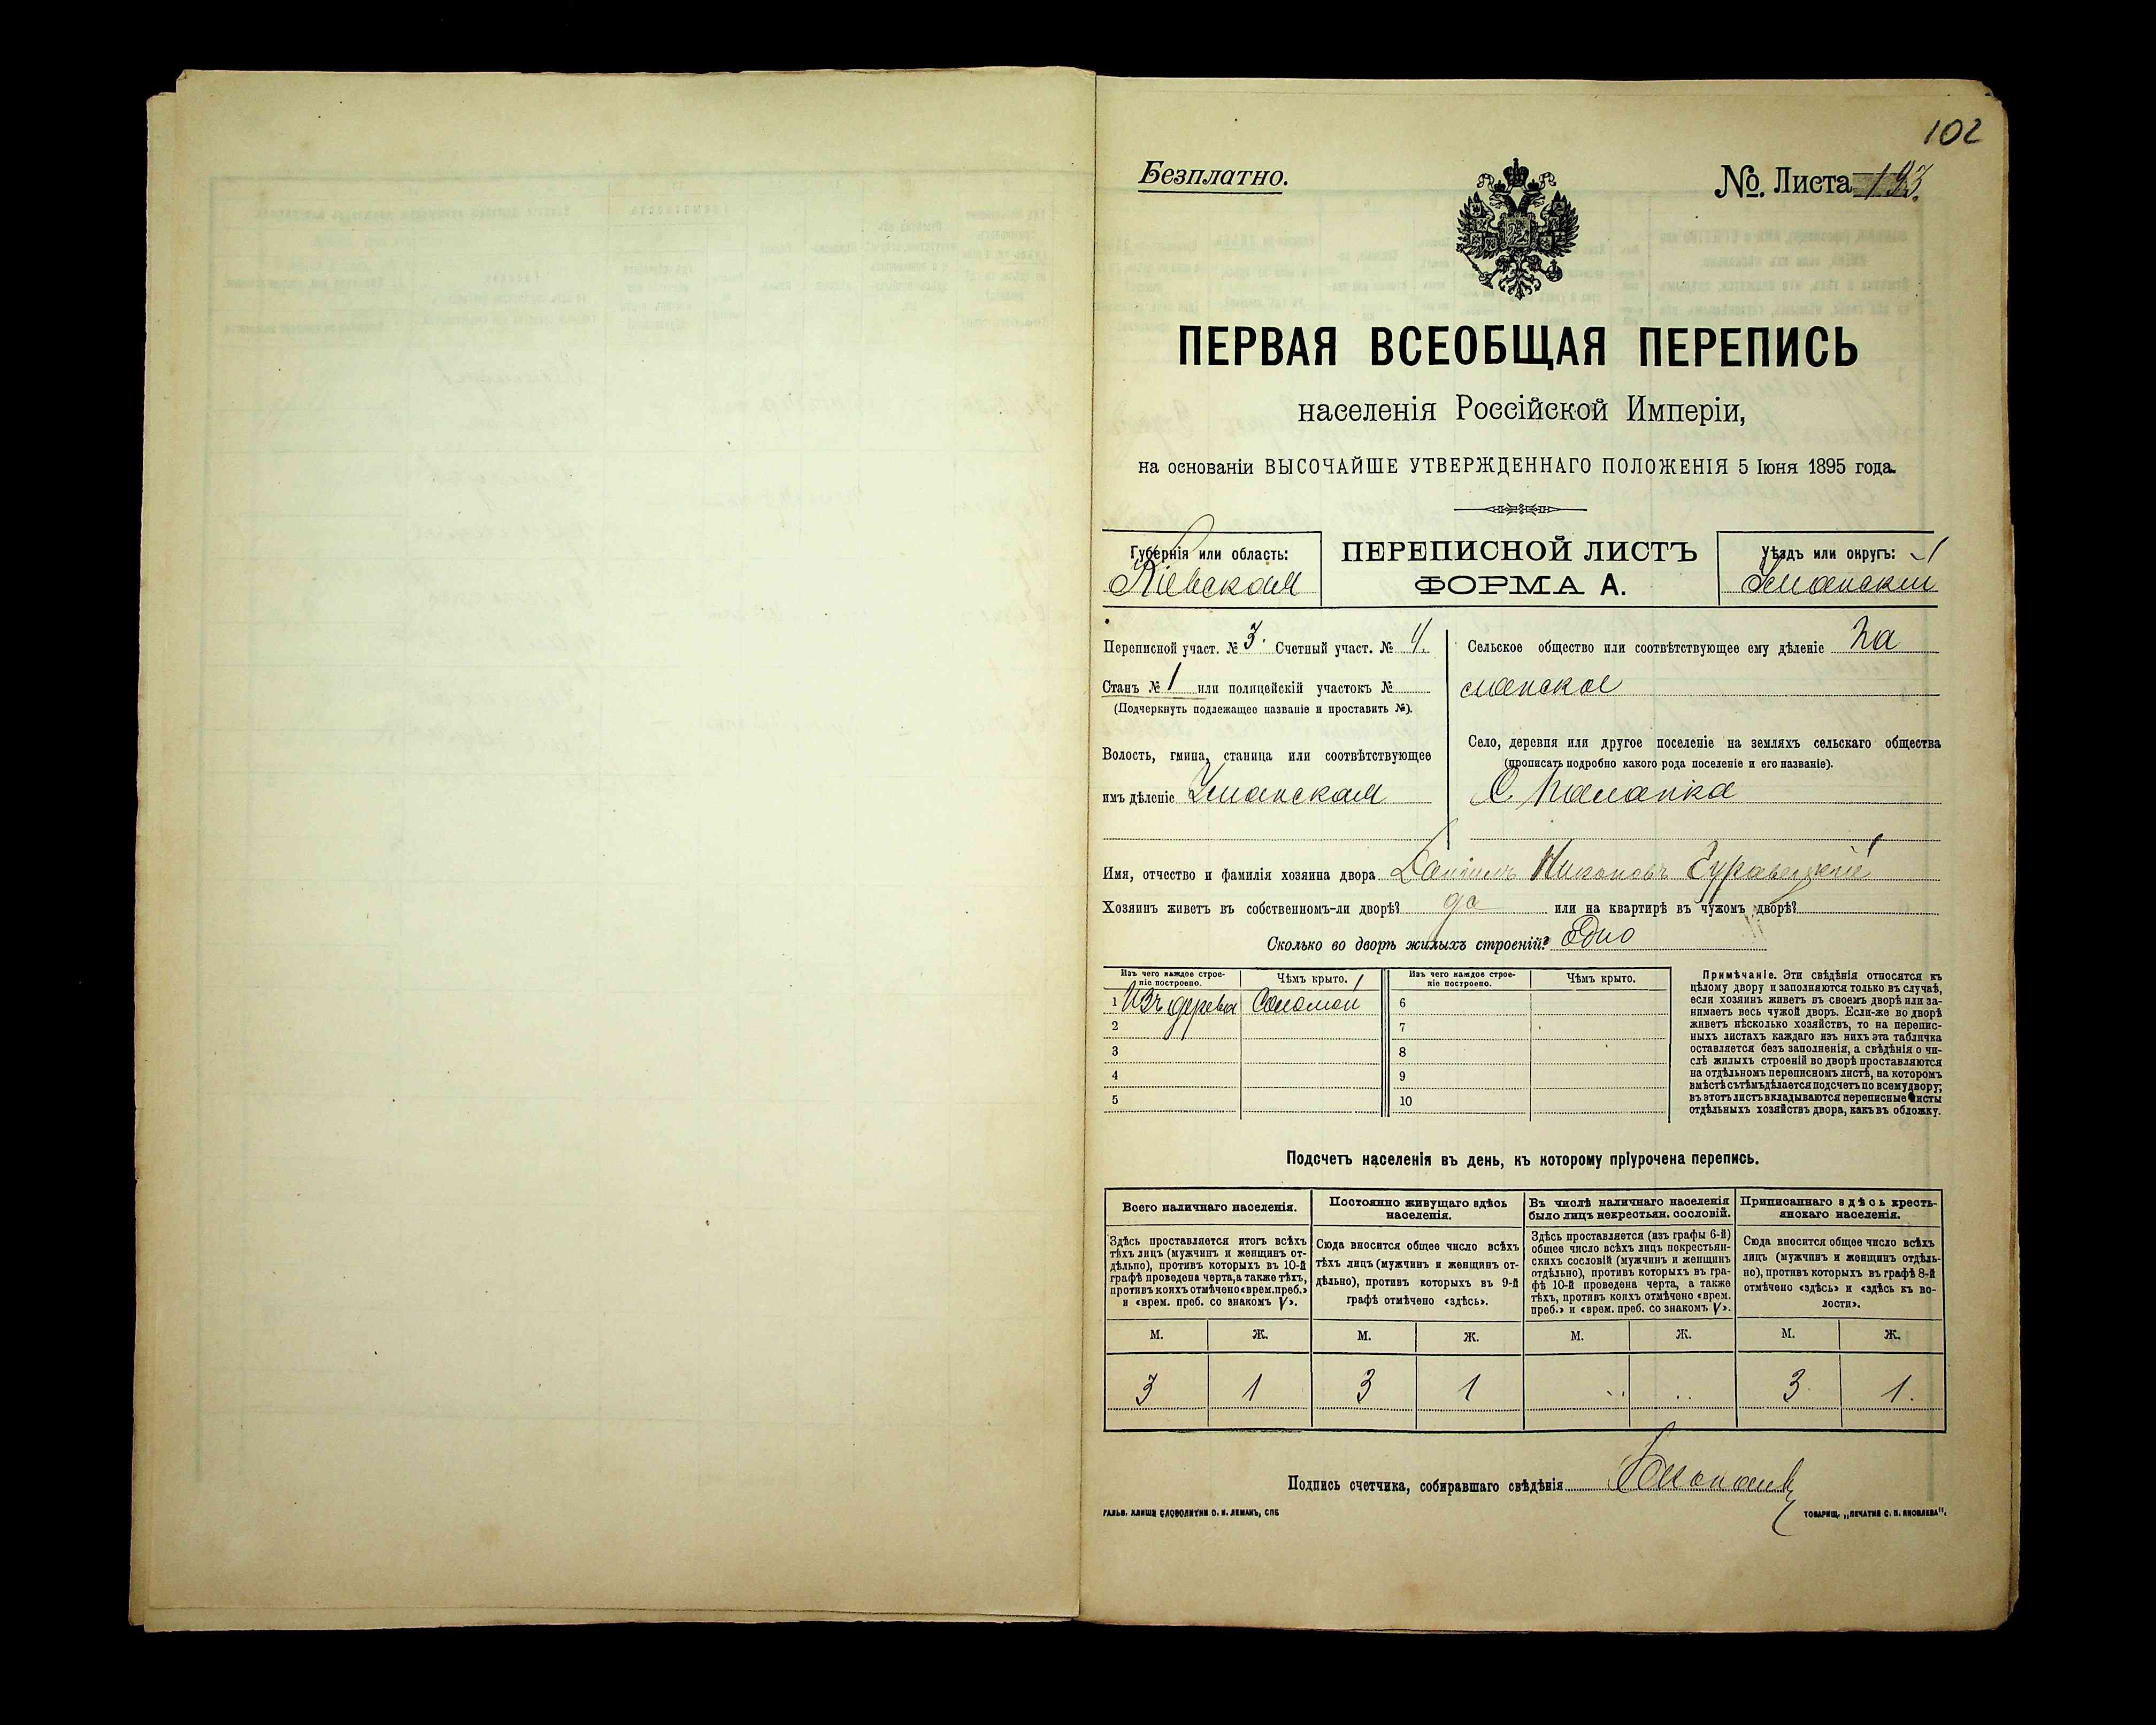 102
Безплатно.
№ Листа 193.
ПЕРВАЯ ВСЕОБЩАЯ ПЕРЕПИСЬ
населенія Россійской Имперіи,
на основаніи ВЫСОЧАЙШЕ УТВЕРЖДЕННАГО ПОЛОЖЕНІЯ 5 Іюня 1895 года.
Губернія или область:
Кіевская
ПЕРЕПИСНОЙ ЛИСТЪ
ФОРМА А.
Уѣздъ или округъ:
Уманскій
Переписной участ. № 3. Счетный участ. № 4.
Станъ № 1 или полицейскій участокъ №
(Подчеркнуть подлежащее названіе и проставить №).
Волость, гмина, станица или соотвѣтствующее
имъ дѣленіе Уманская
Сельское общество или соотвѣтствующее ему дѣленіе Па
ланское
Село, деревня или другое поселеніе на земляхъ сельскаго общества
(прописать подробно какого рода поселеніе и его названіе).
С. Паланка
Имя, отчество и фамилія хозяина двора Даніилъ Никоновъ
Хозяинъ живетъ въ собственномъ-ли дворѣ? да или на квартирѣ въ чужомъ дворѣ?
Сколько во дворѣ жилыхъ строеній? Одно
Изъ чего каждое строе-
ніе построено.
Чѣмъ крыто.
1 Изъ дерева Соломой
2
3
4
5
Изъ чего каждое строе-
ніе построено.
Чѣмъ крыто.
6
7
8
9
10
Примѣчаніе. Эти свѣдѣнія относятся къ
цѣлому двору и заполняются только въ случаѣ,
если хозяинъ живетъ въ своемъ дворѣ или за-
нимаетъ весь чужой дворъ. Если-же во дворѣ
живетъ нѣсколько хозяйствъ, то на перепис-
ныхъ листахъ каждаго изъ нихъ эта табличка
оставляется безъ заполненія, а свѣдѣнія о чи-
слѣ жилыхъ строеній во дворѣ проставляются
на отдѣльномъ переписномъ листѣ, на которомъ
вмѣстѣ съ тѣмъ дѣлается подсчетъ по всему двору;
въ этотъ листъ вкладываются переписные листы
отдѣльныхъ хозяйствъ двора, какъ въ обложку.
Подсчетъ населенія въ день, къ которому пріурочена перепись.
Всего наличнаго населенія.
Здѣсь проставляется итогъ всѣхъ
тѣхъ лицъ (мужчинъ и женщинъ от-
дѣльно), противъ которыхъ въ 10-й
графѣ проведена черта, а также тѣхъ,
противъ коихъ отмѣчено «врем. преб.»
и «врем. преб. со знакомъ V».
М. Ж.
3 1
Постоянно живущаго здѣсь
населенія.
Сюда вносится общее число всѣхъ
тѣхъ лицъ (мужчинъ и женщинъ от-
дѣльно), противъ которыхъ въ 9-й
графѣ отмѣчено «здѣсь».
М. Ж.
3 1
Въ числѣ наличнаго населенія
было лицъ некрестьян. сословій.
Здѣсь проставляется (изъ графы 6-й)
общее число всѣхъ лицъ некрестьян-
скихъ сословій (мужчинъ и женщинъ
отдѣльно), противъ которыхъ въ гра-
фѣ 10-й проведена черта, а также
тѣхъ, противъ коихъ отмѣчено «врем.
преб.» и «врем. преб. со знакомъ V».
М. Ж.
Приписаннаго здѣсь кресть-
янскаго населенія.
Сюда вносится общее число всѣхъ
лицъ (мужчинъ и женщинъ отдѣль-
но), противъ которыхъ въ графѣ 8-й
отмѣчено «здѣсь» и «здѣсь къ во-
лости».
М. Ж.
3 1.
Подпись счетчика, собиравшаго свѣдѣнія
ГАЛЬВ. КЛИШЕ СЛОВОЛИТНИ О. И. ЛЕМАНЪ, СПБ
ТОВАРИЩ. „ПЕЧАТНЯ С. П. ЯКОВЛЕВА".